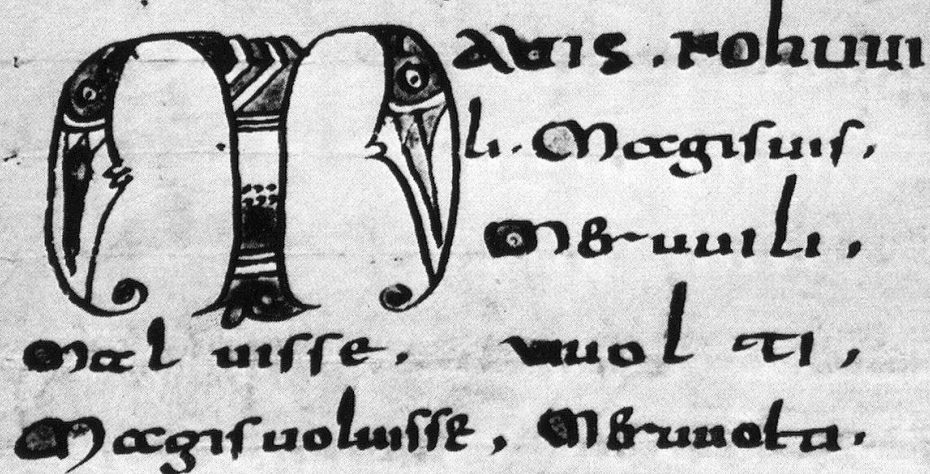 MAUIS . rohuui
li . Magis uis .
Mer uuili .
Mal uisse . uuol ti .
Magis uoluisse . Mer uuolta .